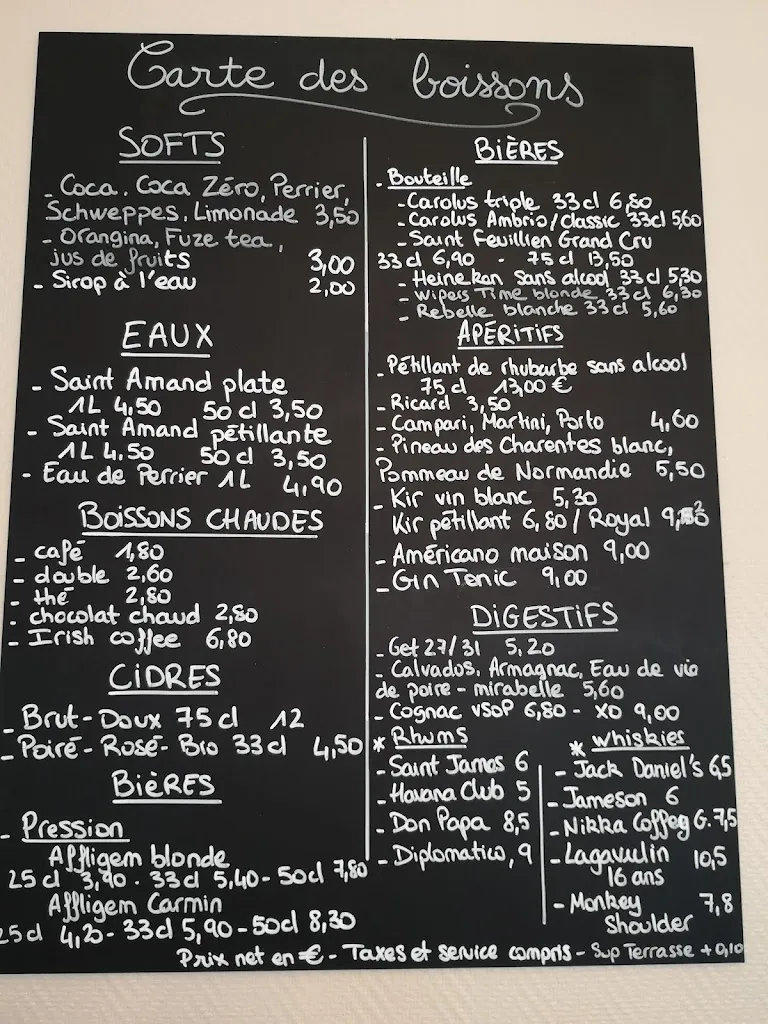 Carte des boissons
SOFTS
- Coca, Coca Zéro, Perrier,
Schweppes, Limonade 3,50
- Orangina, Fuze tea,
jus de fruits 3,00
- Sirop à l'eau 2,00
EAUX
- Saint Amand plate
1L 4,50 50 cl 3,50
- Saint Amand pétillante
1L 4,50 50 cl 3,50
- Eau de Perrier 1L 4,90
BOISSONS CHAUDES
- café 1,80
- double 2,60
- thé 2,80
- chocolat chaud 2,80
- Irish coffee 6,80
CIDRES
- Brut - Doux 75 cl 12
- Poiré - Rosé - Bio 33 cl 4,50
BIÈRES
- Pression
Affligem blonde
25 cl 3,90 - 33 cl 5,40 - 50 cl 7,80
Affligem Carmin
25 cl 4,20 - 33 cl 5,90 - 50 cl 8,30
BIÈRES
- Bouteille
- Carolus triple 33 cl 6,80
- Carolus Ambrio/Classic 33 cl 5,60
- Saint Feuillien Grand Cru
33 cl 6,90 - 75 cl 13,50
- Heineken sans alcool 33 cl 5,30
- Wipers Time blonde 33 cl 6,30
- Rebelle blanche 33 cl 5,60
APÉRITIFS
- Pétillant de rhubarbe sans alcool
75 cl 13,00 €
- Ricard 3,50
- Campari, Martini, Porto 4,60
- Pineau des Charentes blanc,
Pommeau de Normandie 5,50
- Kir vin blanc 5,30
Kir pétillant 6,80 / Royal
- Américano maison 9,00
- Gin Tonic 9,00
DIGESTIFS
- Get 27/31 5,20
- Calvados, Armagnac, Eau de vie
de poire - mirabelle 5,60
- Cognac VSOP 6,80 - XO 9,00
* Rhums
- Saint James 6
- Havana Club 5
- Don Papa 8,5
- Diplomatico, 9
* Whiskies
- Jack Daniel's 6,5
- Jameson 6
- Nikka Coffey G. 7,5
- Lagavulin 10,5
16 ans
- Monkey 7,8
Shoulder
Prix net en € - Taxes et service compris - Sup Terrasse + 0,10